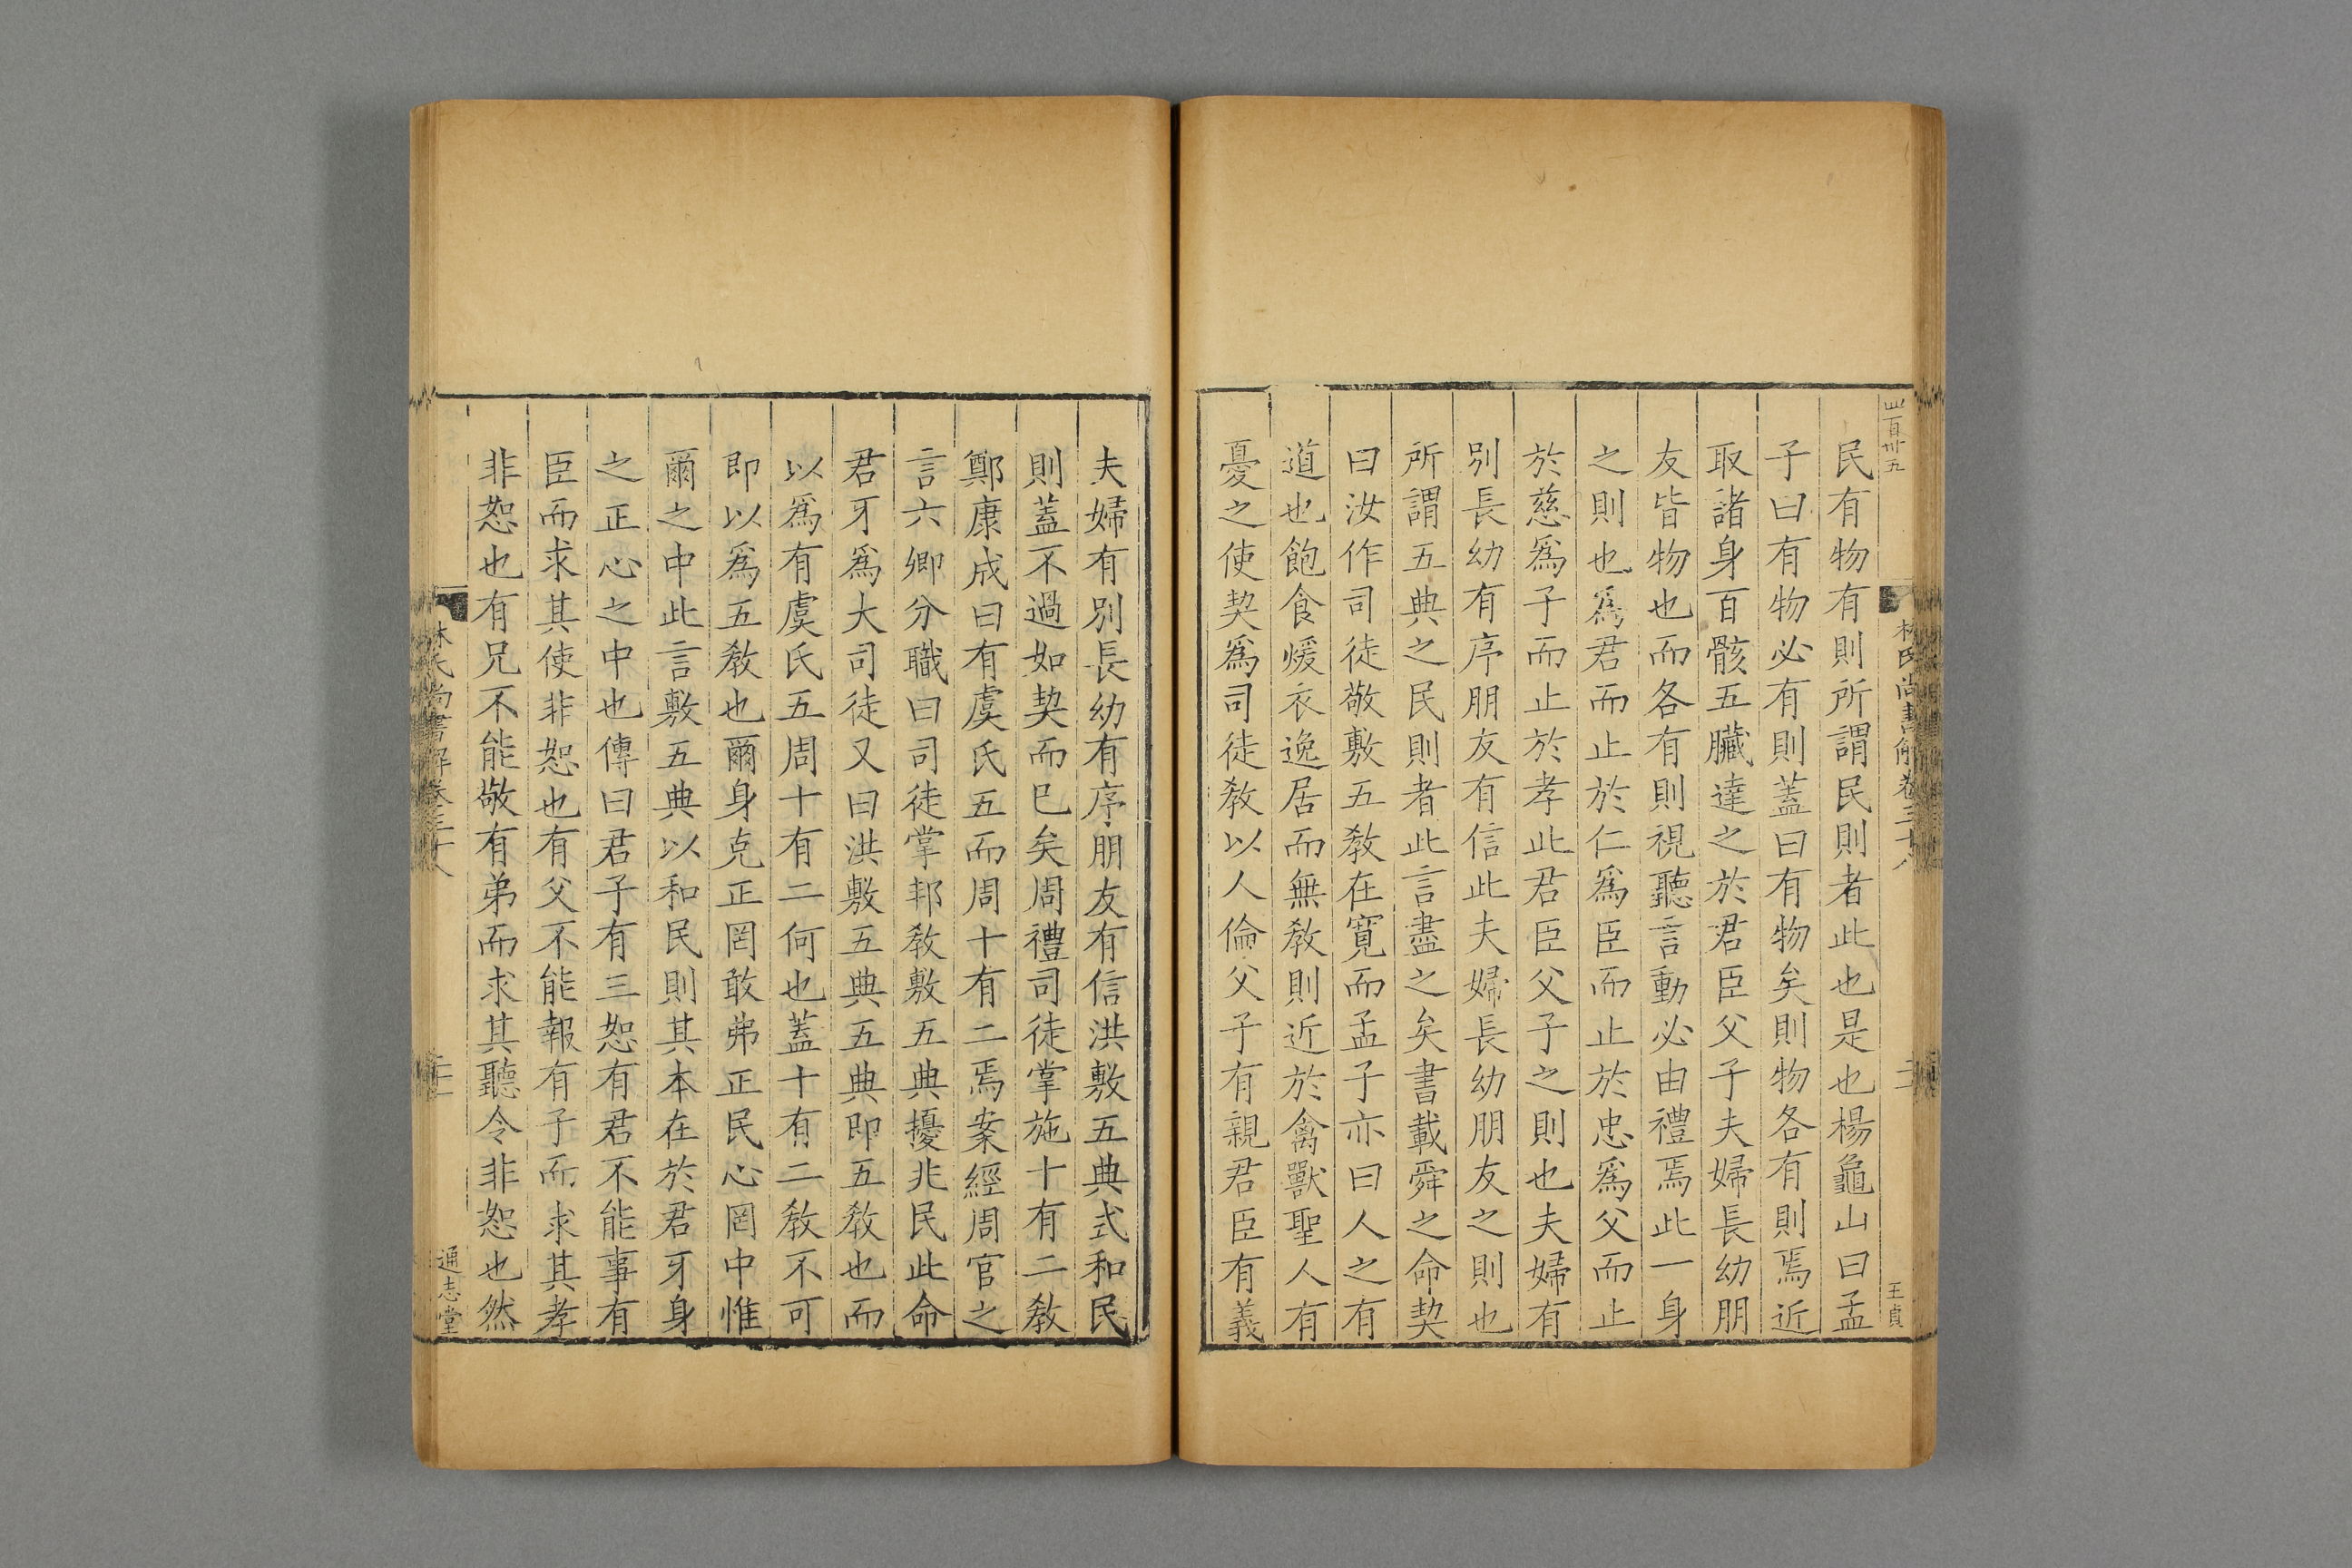 民有物有則所謂民則者此也是也楊龜山曰孟
子曰有物必有則蓋曰有物矣則物各有則焉近
取諸身百骸五臟達之於君臣父子夫婦長幼朋
友皆物也而各有則視聽言動必由禮焉此一身
之則也爲君而止於仁爲臣而止於忠爲父而止
於慈爲子而止於孝此君臣父子之則也夫婦有
別長幼有序朋友有信此夫婦長幼朋友之則也
所謂五典之民則者此言盡之矣書載舜之命契
曰汝作司徒敬敷五敎在寬而孟子亦曰人之有
道也飽食煖衣逸居而無敎則近於禽獸聖人有
憂之使契爲司徒敎以人倫父子有親君臣有義
林氏尚書解卷三十八
王貞
夫婦有別長幼有序朋友有信洪敷五典式和民
則蓋不過如契而已矣周禮司徒掌施十有二敎
鄭康成曰有虞氏五而周十有二焉案經周官之
言六卿分職曰司徒掌邦敎敷五典擾兆民此命
君牙爲大司徒又曰洪敷五典五典即五敎也而
以爲有虞氏五周十有二何也蓋十有二敎不可
即以爲五敎也爾身克正罔敢弗正民心罔中惟
爾之中此言敷五典以和民則其本在於君牙身
之正心之中也傳曰君子有三恕有君不能事有
臣而求其使非恕也有父不能報有子而求其孝
非恕也有兄不能敬有弟而求其聽令非恕也然
林氏尚書解卷三十八
通志堂